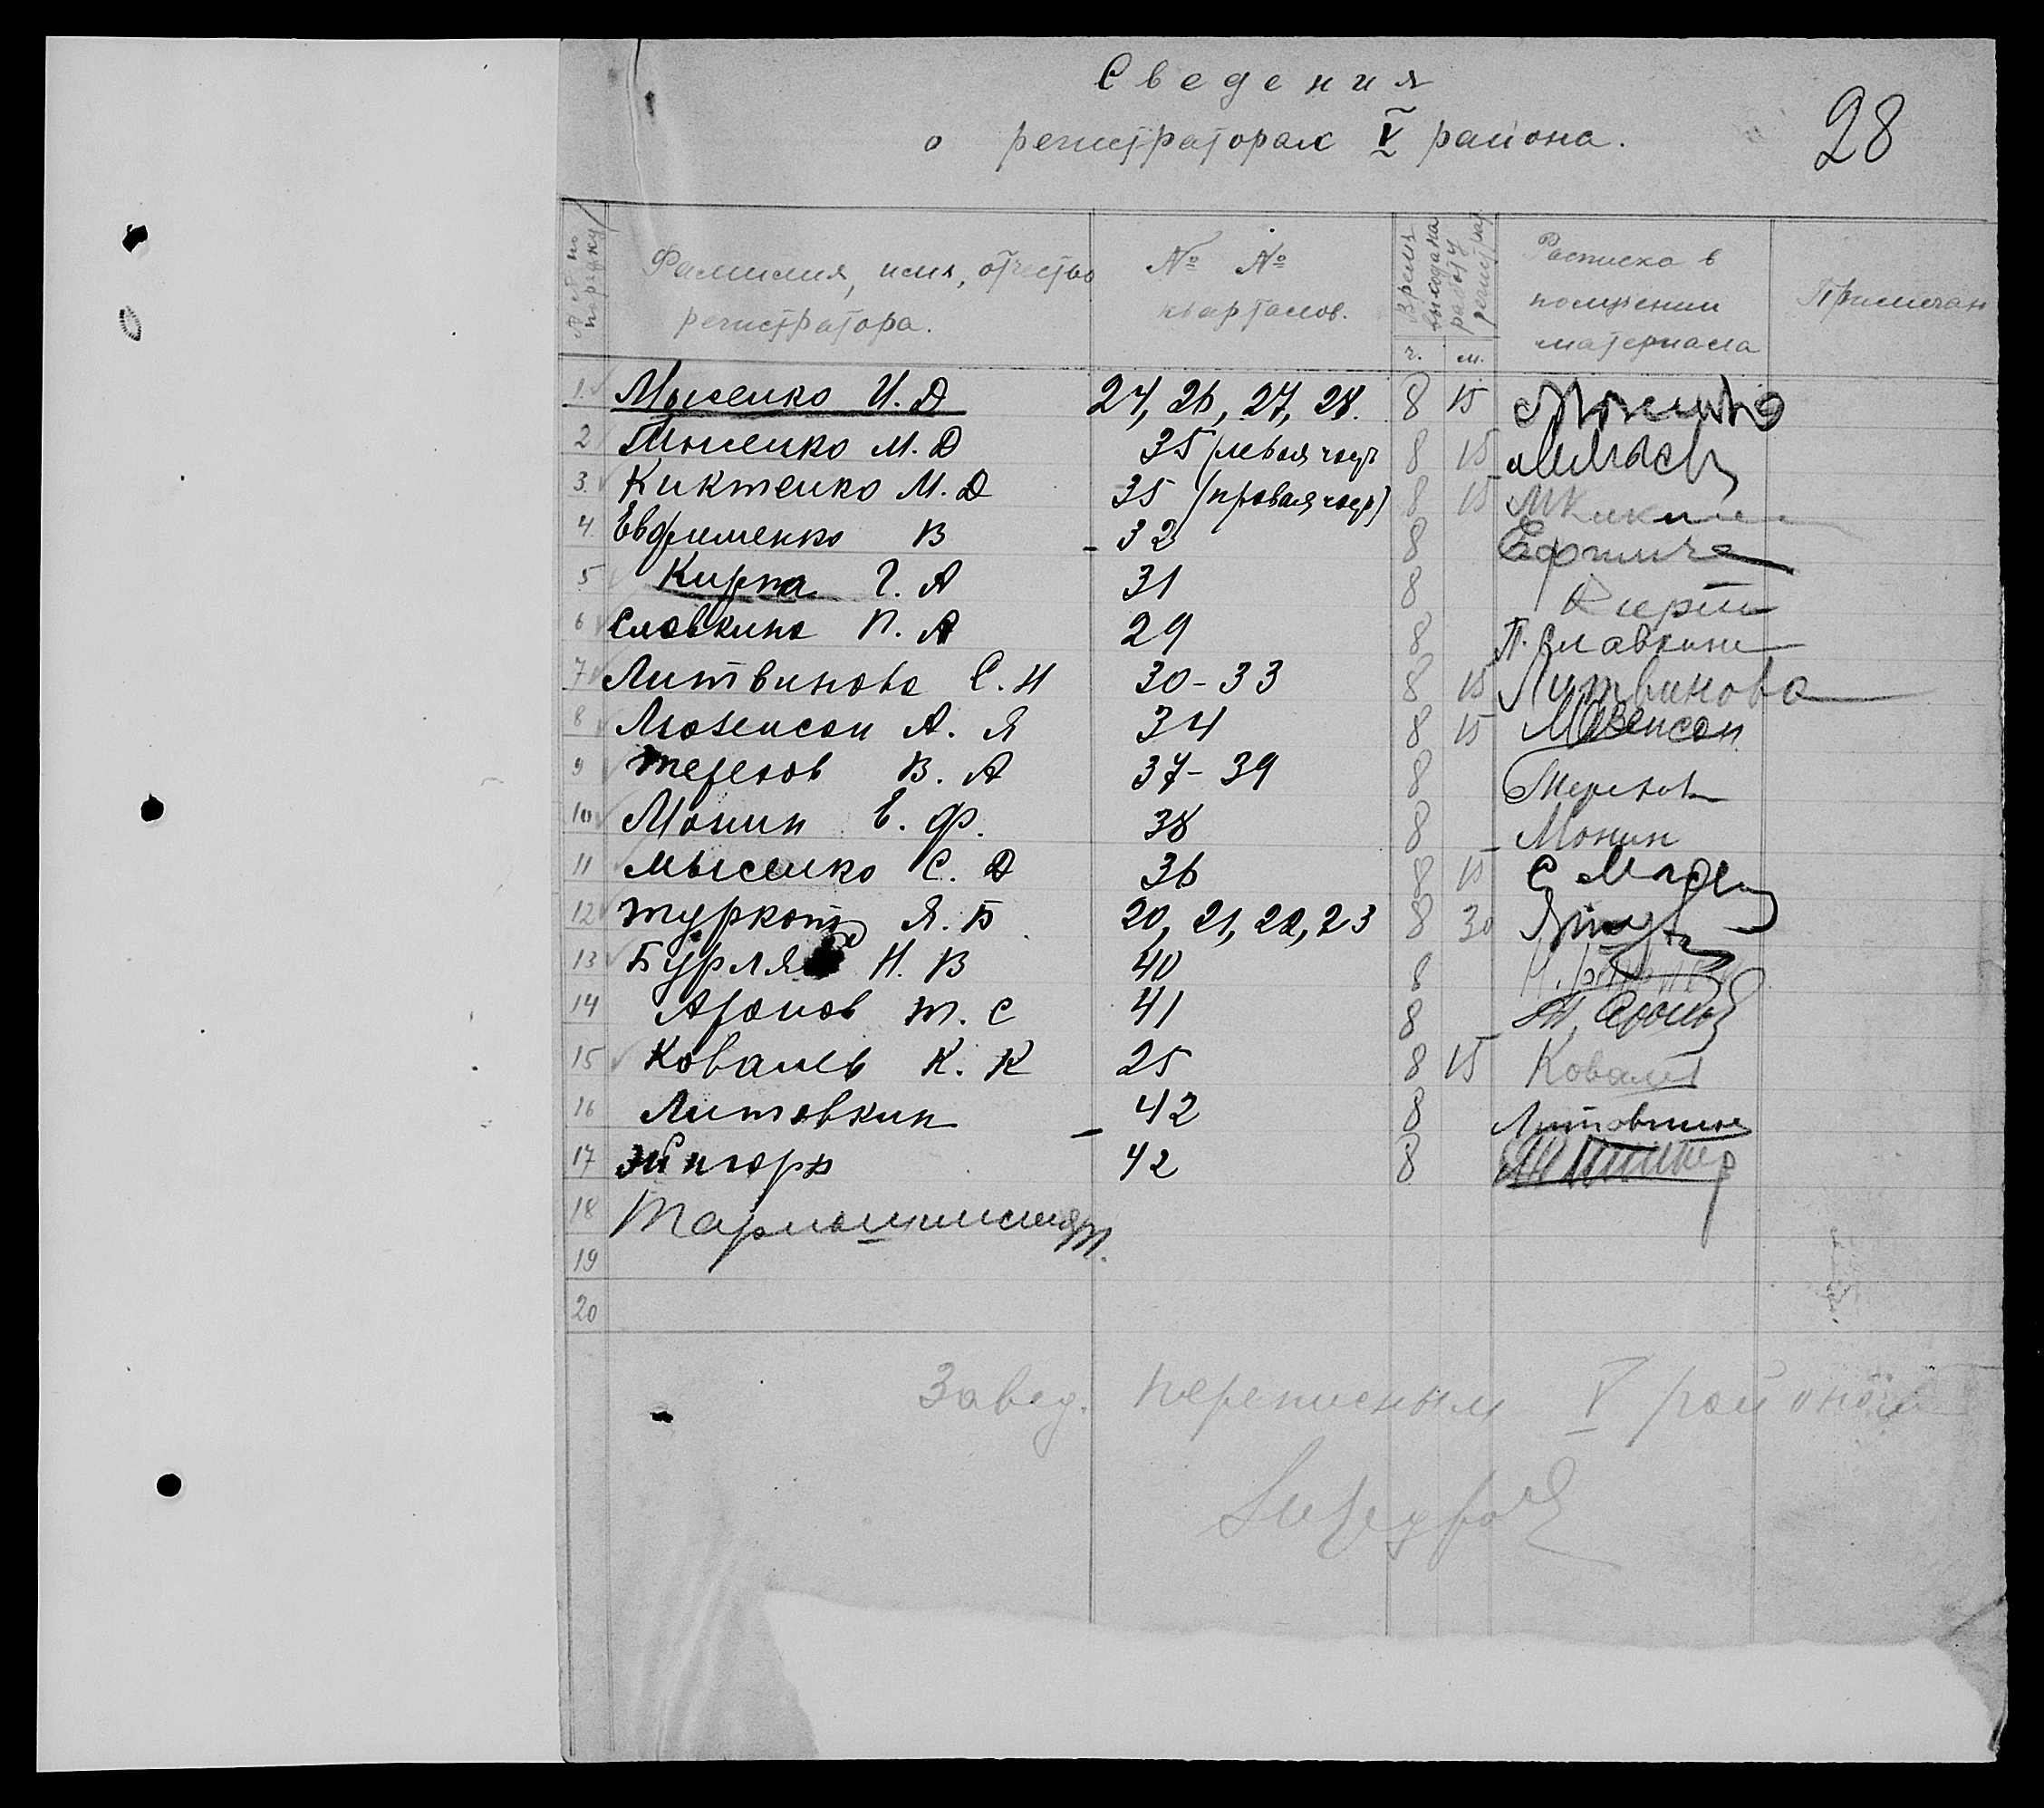 Сведения
28
о регистраторах V района.
№ № по порядку
Фамилия, имя, отчество регистратора.
№ № кварталов.
Время выхода на работу регистрат
ч. м.
Расписка в получении материала
Примечан
1. Мысенко И. Д 24, 26, 27, 28. 8 15
2 М. Д 35 (левая част 8 15
3. Киктенко М. Д 35 (правая част) 8 15 М Кикт
4. Евфименко В 32 8
5 Кирпа Г. А 31 8
6 Славкина П. А 29 8 П. Славкина
7 Литвинова С. И 30-33 8 15 Литвинова
8 Мозенсон А. Я 34 8 15 Мозенсон
9 Терехов В. А 37-39 8 Терехов
10 Монин Е. Ф. 38 8 Монин
11 Мысенко С. Д 36 8 15
12 Туркот Я. Б 20, 21, 22, 23 8 30
13 Бурля Н. В 40 8
14 Аронов Т. С 41 8
15 Ковалев К. К 25 8 15 Ковалев
16 Литовкин 42 8
17 42 8
18
19
20
Завед. переписным V районом